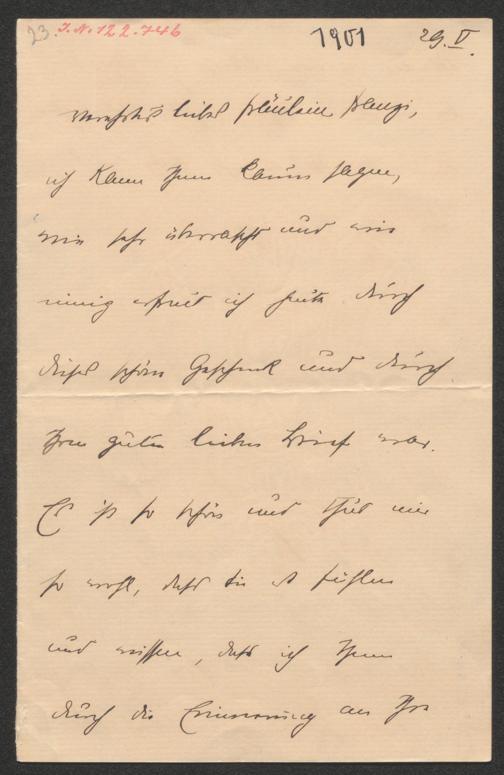 23. J. N. 122.746
1901 29. V.
Verehrtes liebes Fräulein Klenzi,
ich kann Ihnen kaum sagen,
wie sehr überrascht und wie
innig erfreut ich heute durch
dieses schöne Geschenk und durch
Ihren guten lieben Brief war.
Es ist so schön und thut mir
so wohl, dass Sie es fühlen
und wissen, dass ich Ihnen
durch die Erinnerung an Ihre